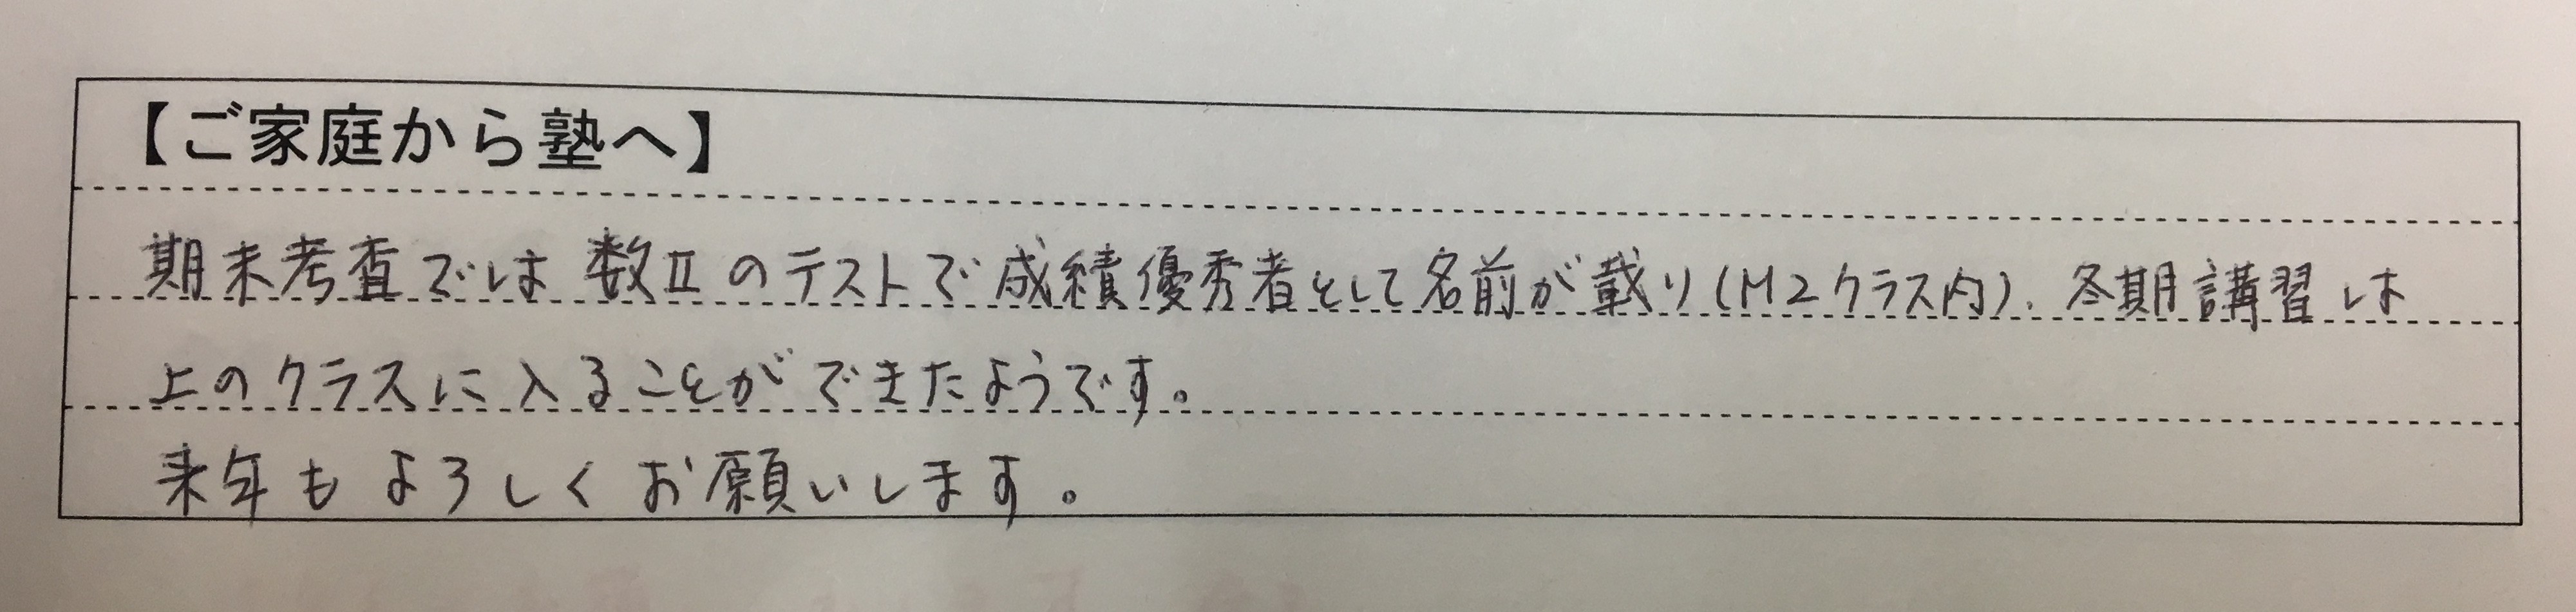 【ご家庭から塾へ】
期末考査では数Ⅱのテストで成績優秀者として名前が載り(M2クラス内)、冬期講習は
上のクラスに入ることができたようです。
来年もよろしくお願いします。